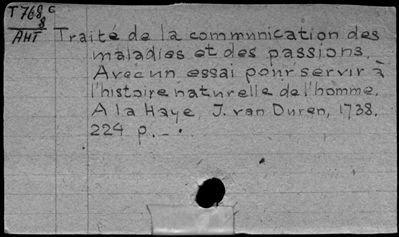 T768c
8
AHT
Traité de la communication des
maladies et des passions.
Avec un essai pour servir à
l'histoire naturelle de l'homme.
A la Haye, J. van Duren, 1738.
224 p. -.